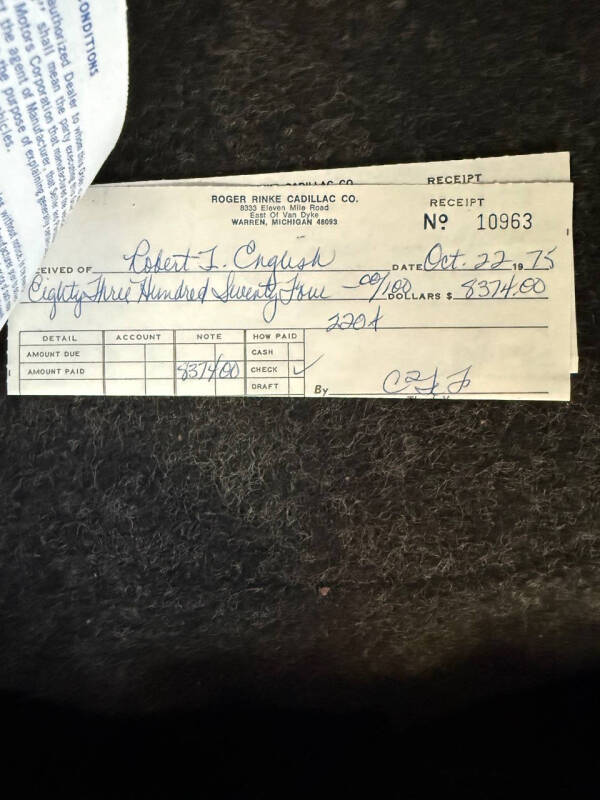 CONDITIONS
authorized Dealer to whom this
shall mean the party
Motors Corporation that
the agent of Manufacturer
the purpose of explaining
vehicles.
RECEIPT
ROGER RINKE CADILLAC CO.
8333 Eleven Mile Road
East Of Van Dyke
WARREN, MICHIGAN 48093
RECEIPT
No 10963
CEIVED OF Robert T. English DATE Oct. 22 1975
Eighty Three Hundred Seventy Four 00/100 DOLLARS $ 8374.00
DETAIL ACCOUNT NOTE HOW PAID
AMOUNT DUE CASH
AMOUNT PAID 8374 00 CHECK ✓
DRAFT By